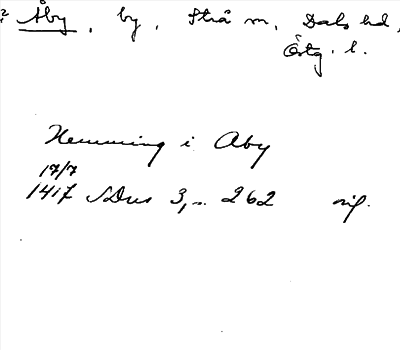 2 Åby, by, Strå sn, Dals hd,
Östg. l.
Hemming i Aby
17/7
1417 SDns 3, s. 262 orig.